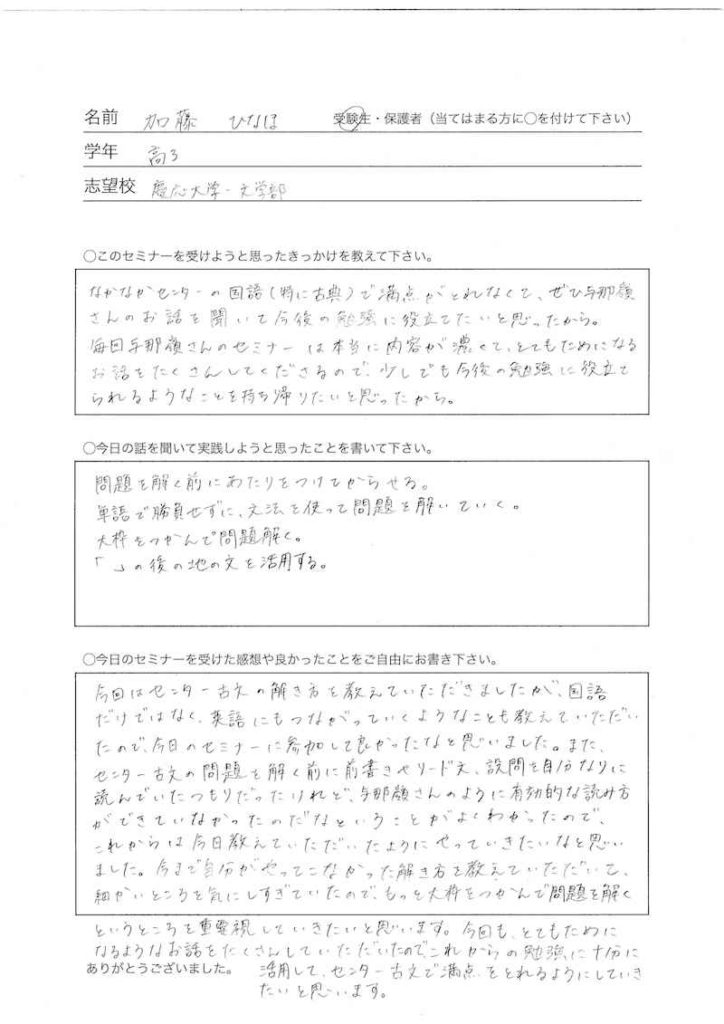 名前 加藤 ひなほ 受験生・保護者（当てはまる方に○を付けて下さい）
学年 高3
志望校 慶応大学-文学部
○このセミナーを受けようと思ったきっかけを教えて下さい。
なかなかセンターの国語(特に古典)で満点がとれなくて、ぜひ与那嶺
さんのお話を聞いて今後の勉強に役立てたいと思ったから。
毎回与那嶺さんのセミナーは本当に内容が濃くて、とてもためになる
お話をたくさんしてくださるので、少しでも今後の勉強に役立て
られるようなことを持ち帰りたいと思ったから。
○今日の話を聞いて実践しようと思ったことを書いて下さい。
問題を解く前にあたりをつけてからせる。
単語で勝負せずに、文法を使って問題を解いていく。
大枠をつかんで問題解く。
「 」の後の地の文を活用する。
○今日のセミナーを受けた感想や良かったことをご自由にお書き下さい。
今回はセンター古文の解き方を教えていただきましたが、国語
だけではなく、英語にもつながっていくようなことも教えていただい
たので、今日のセミナーに参加して良かったなと思いました。また、
センター古文の問題を解く前に前書きやリード文、設問を自分なりに
読んでいたつもりだったけれど、与那嶺さんのように有効的な読み方
ができていなかったのだなということがよくわかったので、
これからは今日教えていただいたようにやっていきたいなと思い
ました。今まで自分がやってこなかった解き方を教えていただいて、
細かいところを気にしすぎていたので、もっと大枠をつかんで問題を解く
というところを重要視していきたいと思います。今回も、とてもために
なるようなお話をたくさんしていただいたので、これからの勉強に十分に
ありがとうございました。 活用して、センター古文で満点をとれるようにしていき
たいと思います。